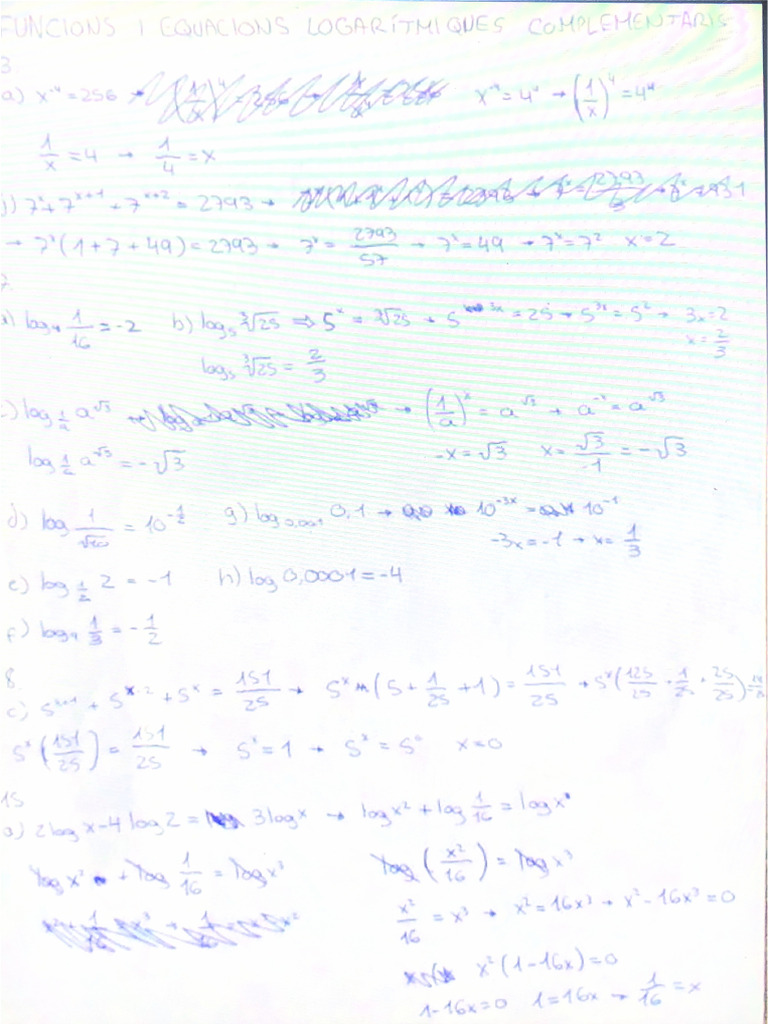 FUNCIONS I EQUACIONS LOGARÍTMIQUES COMPLEMENTARIS
3
a) x⁻⁴ = 256 → x⁻⁴ = 4⁴ → (1/x)⁴ = 4⁴
1/x = 4 → 1/4 = x
j) 7ˣ + 7ˣ⁺¹ + 7ˣ⁺² = 2793 →
→ 7ˣ(1 + 7 + 49) = 2793 → 7ˣ = 2793/57 → 7ˣ = 49 → 7ˣ = 7² x = 2
7
a) log₄ 1/16 = -2 b) log₅ ∛25 ⇒ 5ˣ = ∛25 → 5³ˣ = 25 → 5³ˣ = 5² → 3x = 2
x = 2/3
log₅ ∛25 = 2/3
c) log_{1/a} a^{√3} → (1/a)ˣ = a^{√3} → a⁻ˣ = a^{√3}
log_{1/2} a^{√3} = -√3 -x = √3 x = √3/-1 = -√3
d) log 1/√10 = 10^{-1/2} g) log_{0,001} 0,1 → 10⁻³ˣ = 10⁻¹
-3x = -1 → x = 1/3
e) log_{1/2} 2 = -1 h) log 0,0001 = -4
f) log₉ 1/3 = -1/2
8
c) 5ˣ⁺¹ + 5ˣ⁻² + 5ˣ = 151/25 → 5ˣ (5 + 1/25 + 1) = 151/25 → 5ˣ(125/25 + 1/25 + 25/25) =
5ˣ (151/25) = 151/25 → 5ˣ = 1 → 5ˣ = 5⁰ x = 0
15
a) 2 log x - 4 log 2 = 3 log x → log x² + log 1/16 = log x³
log x² + log 1/16 = log x³ log (x²/16) = log x³
x²/16 = x³ → x² = 16x³ → x² - 16x³ = 0
x²(1 - 16x) = 0
1 - 16x = 0 1 = 16x → 1/16 = x